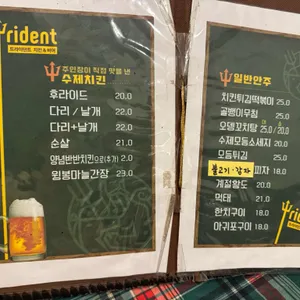 trident
트라이던트 치킨 & 비어
주인장이 직접 맛을 낸
수제치킨
후라이드 22.0
다리 / 날개 22.0
다리+날개 22.0
순살 21.0
양념반반치킨으로(추가) 2.0
윙봉마늘간장 23.0
trident
일반안주
치킨튀김떡볶이 25.0
골뱅이무침 25.0
오뎅꼬치탕 25.0 / 20.0
수제모듬소세지 20.0
모듬튀김 20.0
불고기·감자 피자 18.0
계절황도 20.0
먹태 21.0
한치구이 18.0
아귀포구이 18.0